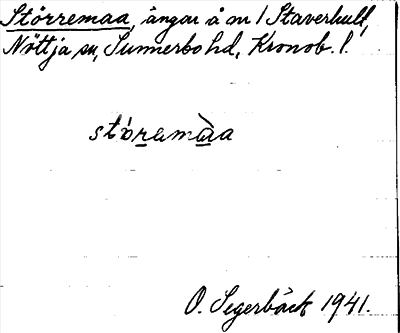 Störremaa, ängar å m 1 Staverhult,
Nöttja sn, Sunnerbo hd, Kronob. l.
stóremàa
O. Segerbäck 1941.